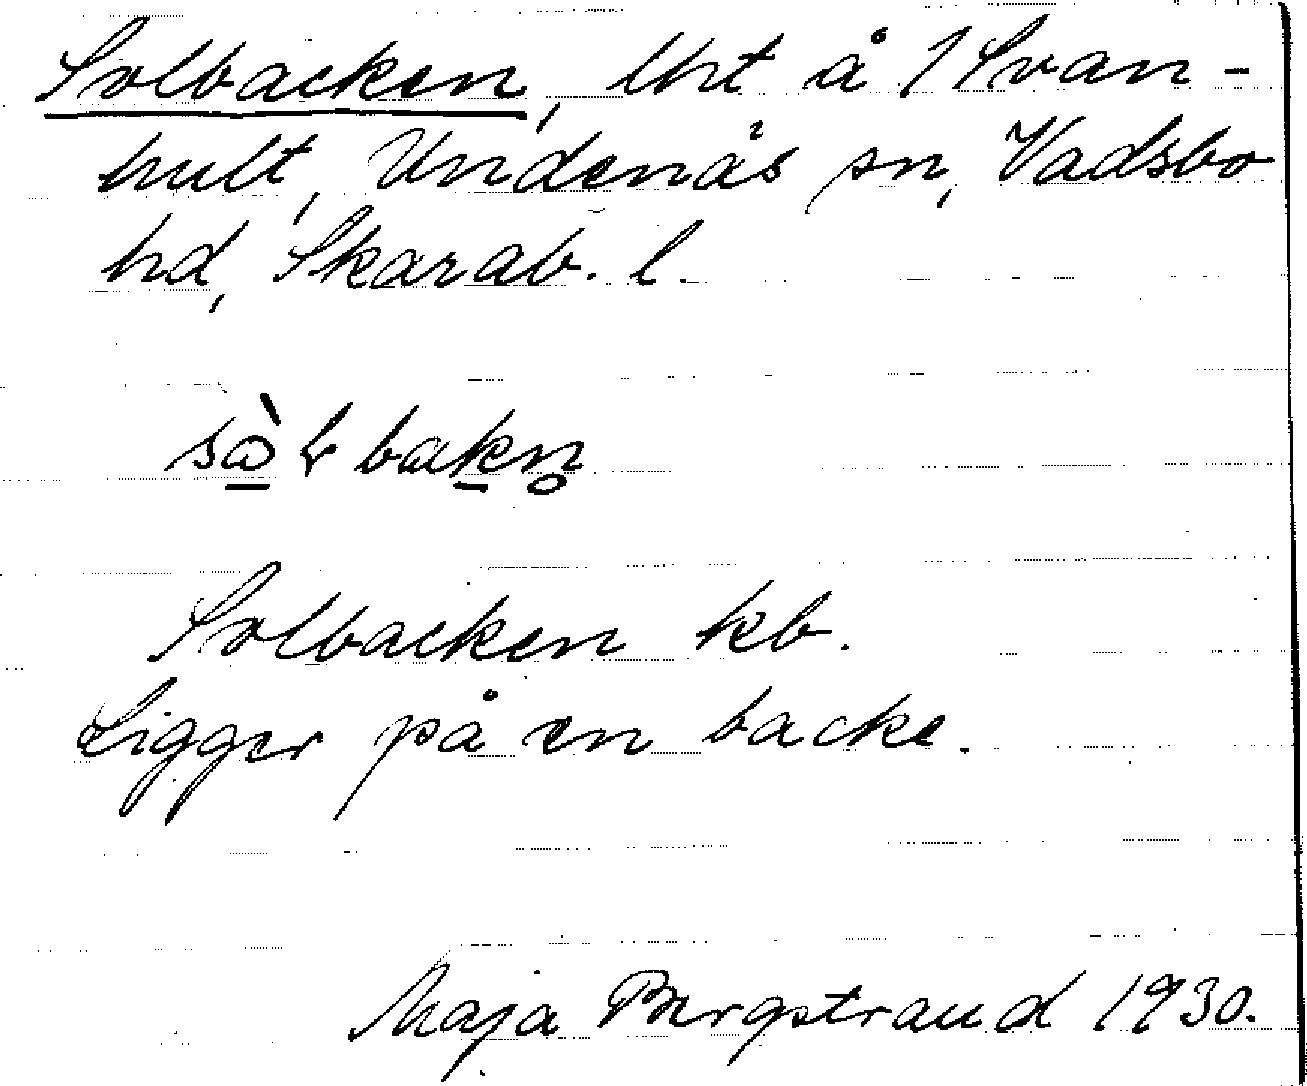 Solbacken, lht å 1 Svan-
hult, Undenäs sn, Vadsbo
hd, Skarab. l.
Solbacken kb.
Ligger på en backe.
Maja Bergstrand 1930.